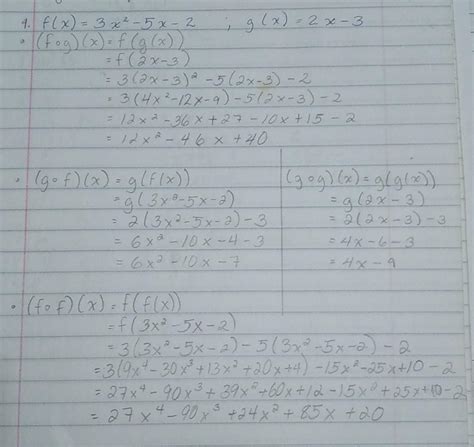 1. f(x) = 3x² - 5x - 2 ; g(x) = 2x - 3
• (fog)(x) = f(g(x))
= f(2x-3)
= 3(2x-3)² - 5(2x-3) - 2
= 3(4x²-12x-9) - 5(2x-3) - 2
= 12x² - 36x + 27 - 10x + 15 - 2
= 12x² - 46x + 40
• (g∘f)(x) = g(f(x))
= g(3x²-5x-2)
= 2(3x²-5x-2) - 3
= 6x² - 10x - 4 - 3
= 6x² - 10x - 7
(g∘g)(x) = g(g(x))
= g(2x-3)
= 2(2x-3) - 3
= 4x - 6 - 3
= 4x - 9
• (f∘f)(x) = f(f(x))
= f(3x²-5x-2)
= 3(3x²-5x-2) - 5(3x²-5x-2) - 2
= 3(9x⁴-30x³+13x²+20x+4) - 15x²-25x+10-2
= 27x⁴ - 90x³ + 39x² + 60x + 12 - 15x² + 25x + 10 - 2
= 27x⁴ - 90x³ + 24x² + 85x + 20